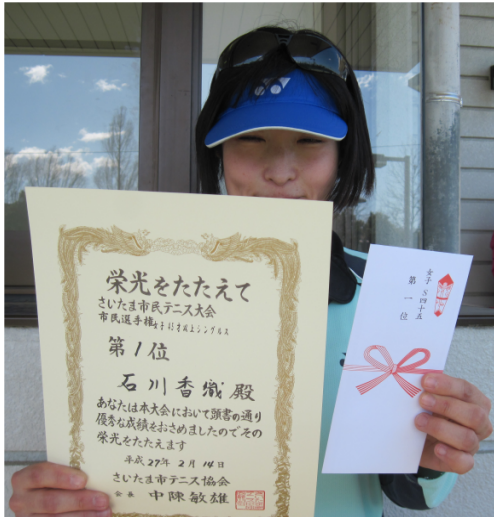 栄光をたたえて
さいたま市民テニス大会
市民選手権女子45才以上シングルス
第1位
石川香織殿
あなたは本大会において頭書の通り
優秀な成績をおさめましたのでその
栄光をたたえます
平成27年2月14日
さいたま市テニス協会
会長 中陳敏雄
女子S四十五
第一位